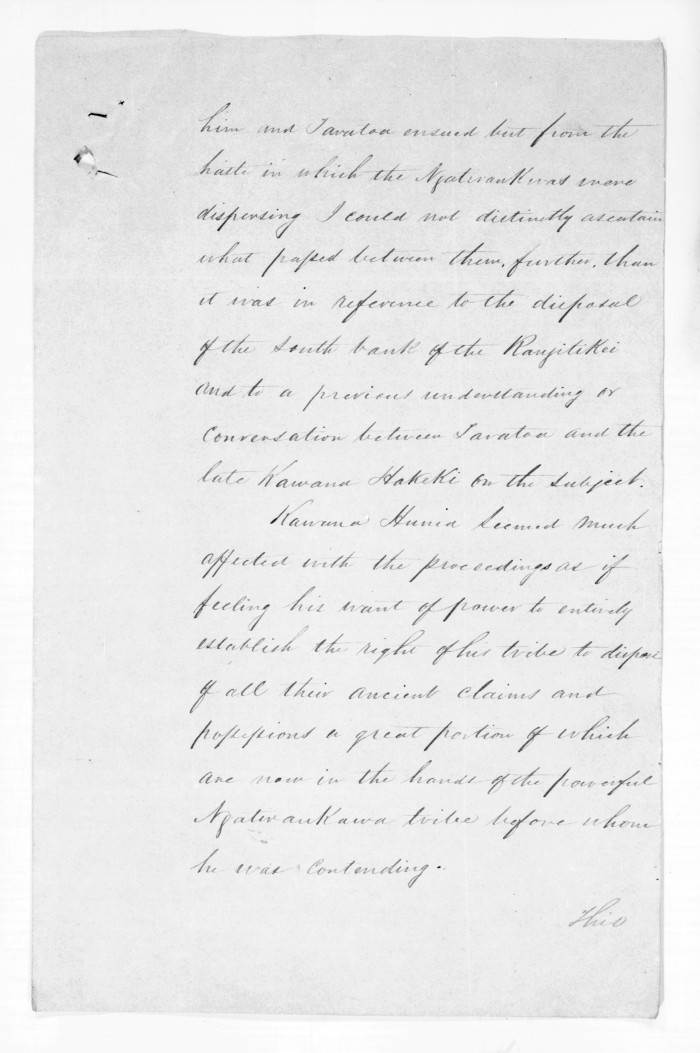 him and Taratoa ensued but from the
haste in which the Ngateraukawas were
dispersing I could not distinctly ascertain
what passed between them, further, than
it was in reference to the disposal
of the South bank of the Rangitikei
and to a previous understanding or
conversation between Taratoa and the
late Kawana Hakeki on the subject.
Kawana Hunia seemed much
affected with the proceedings as if
feeling his want of power to entirely
establish the right of his tribe to dispose
of all their ancient claims and
possessions a great portion of which
are now in the hands of the powerful
Ngateraukawa tribe before whom
he was contending.
This